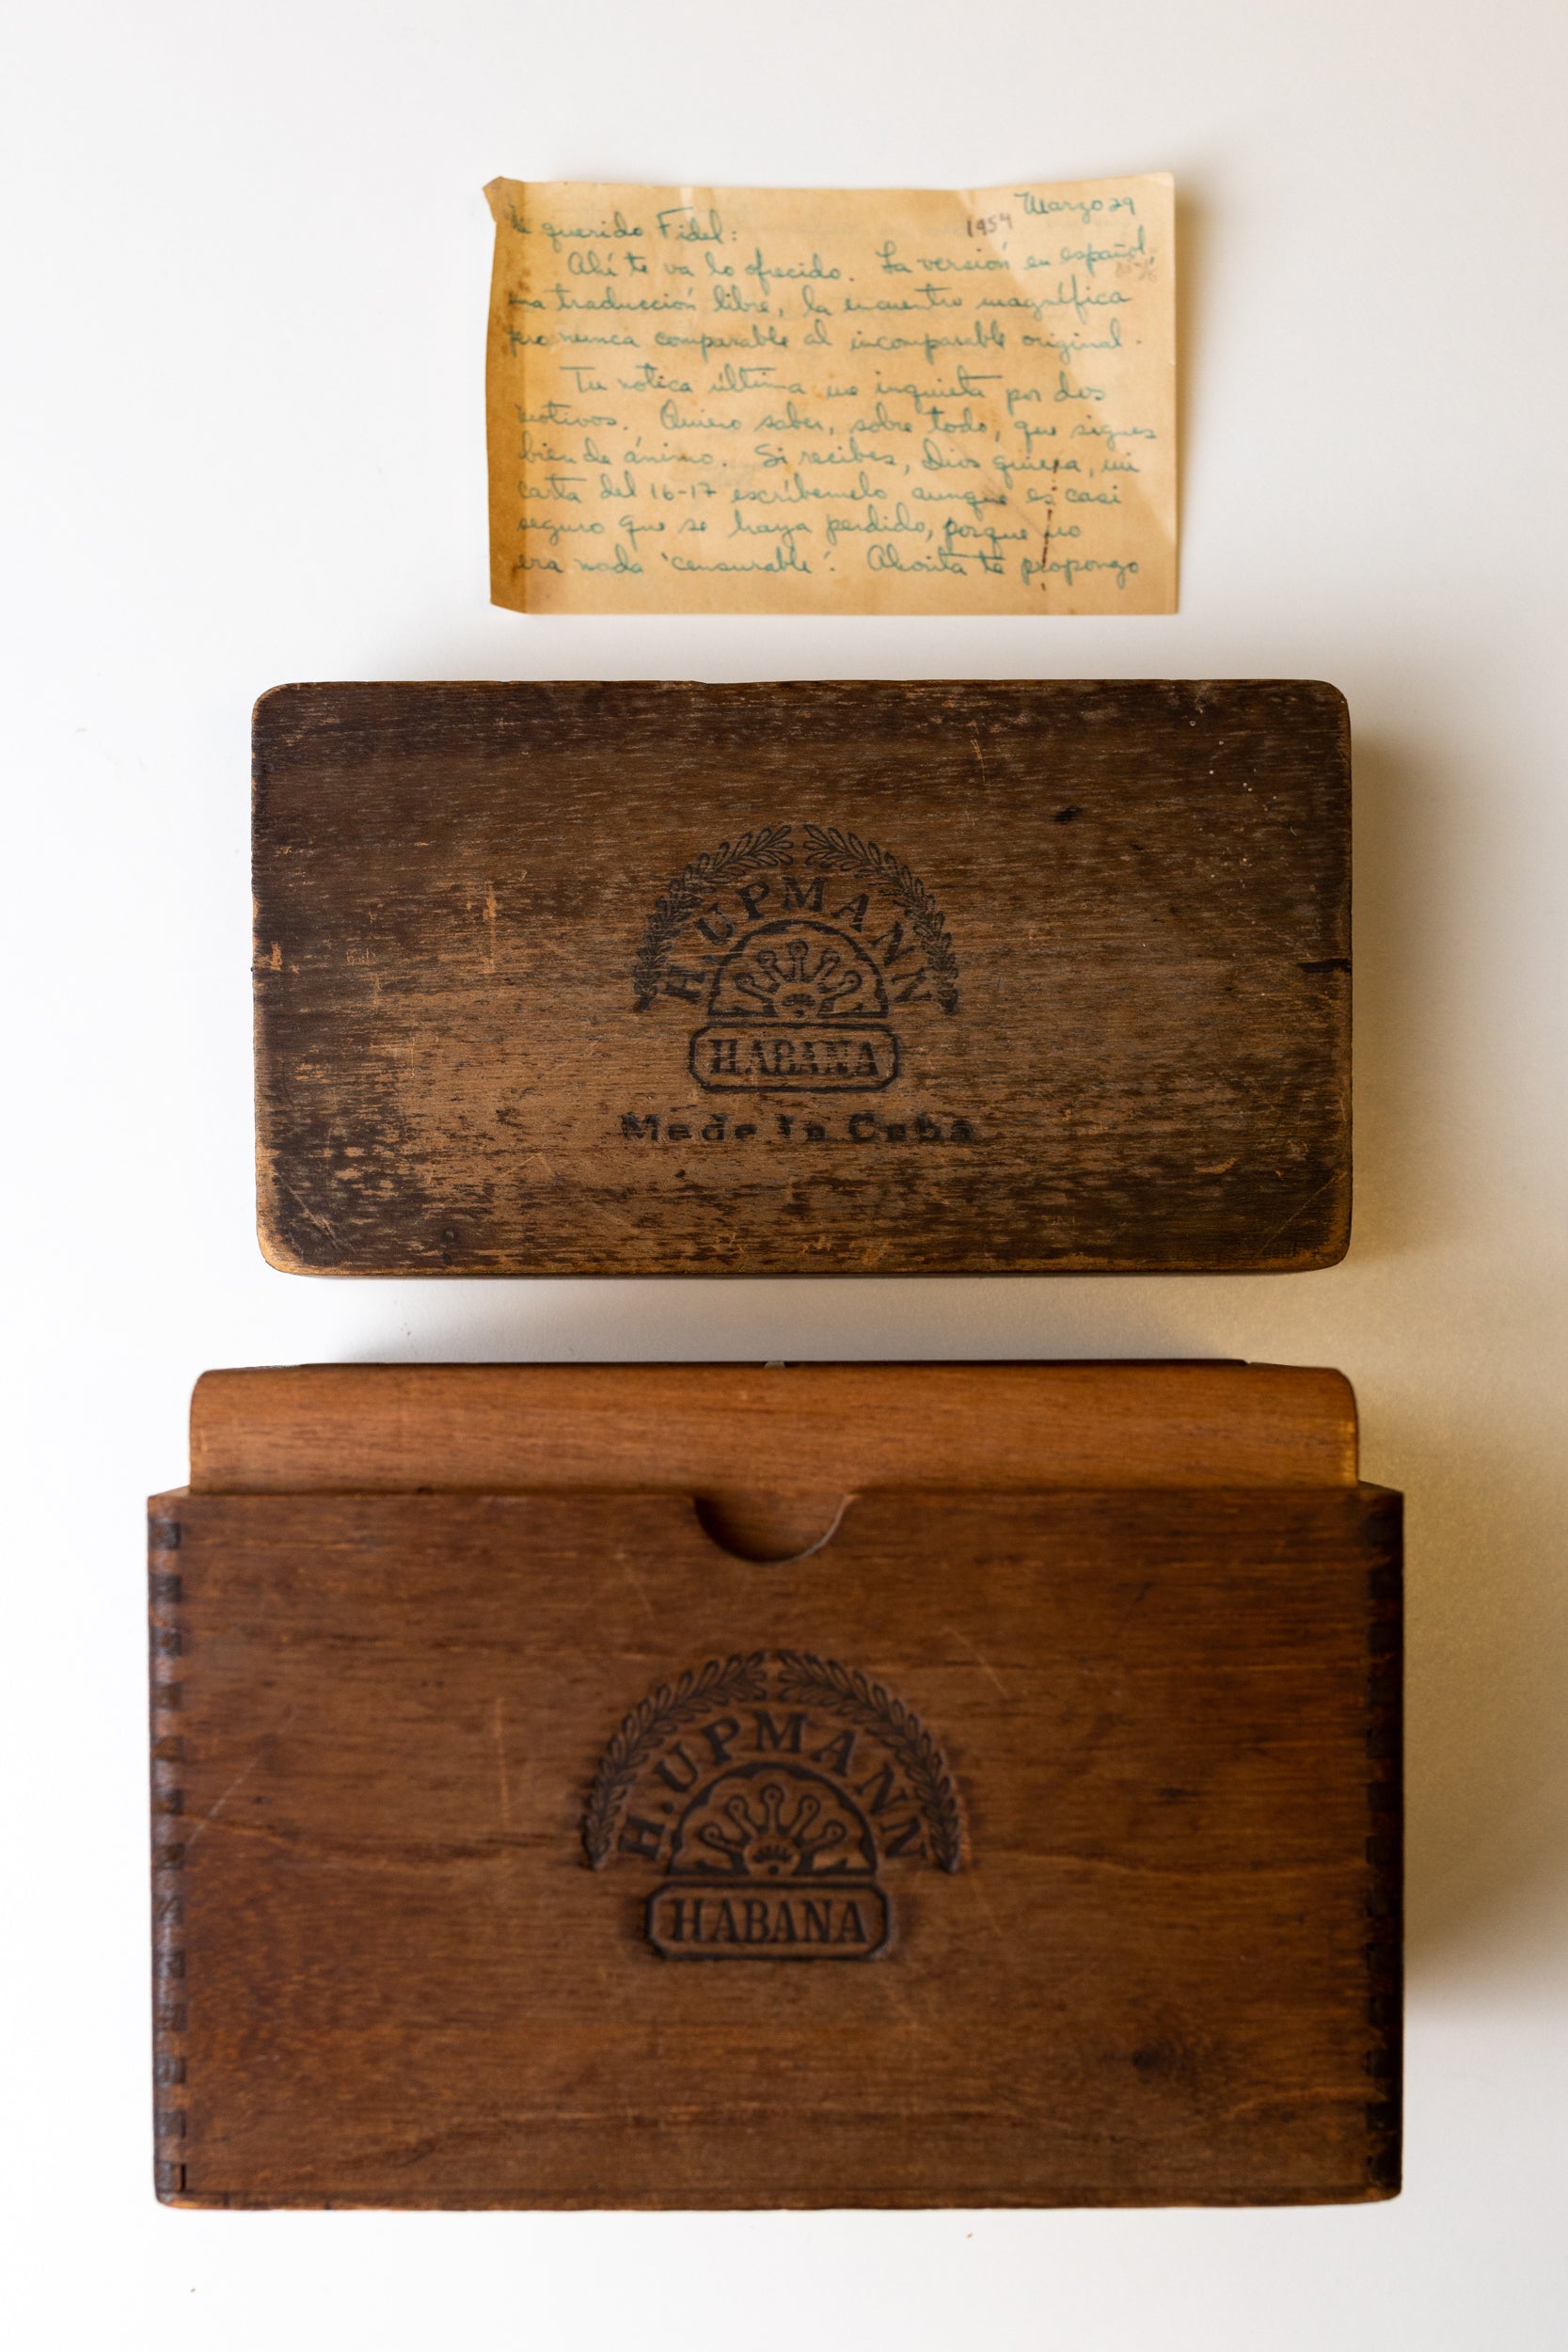 Marzo 29
1954
Mi querido Fidel:
Ahí te va lo ofrecido. La versión en español,
una traducción libre, la encuentro magnífica
pero nunca comparable al incomparable original.
Tu notica última me inquieta por dos
motivos. Quiero saber, sobre todo, que sigues
bien de ánimo. Si recibes, Dios quiera, mi
carta del 16-17 escríbemelo aunque es casi
seguro que se haya perdido, porque no
era nada 'censurable'. Ahorita te propongo
H. UPMANN
HABANA
Made in Cuba
H. UPMANN
HABANA